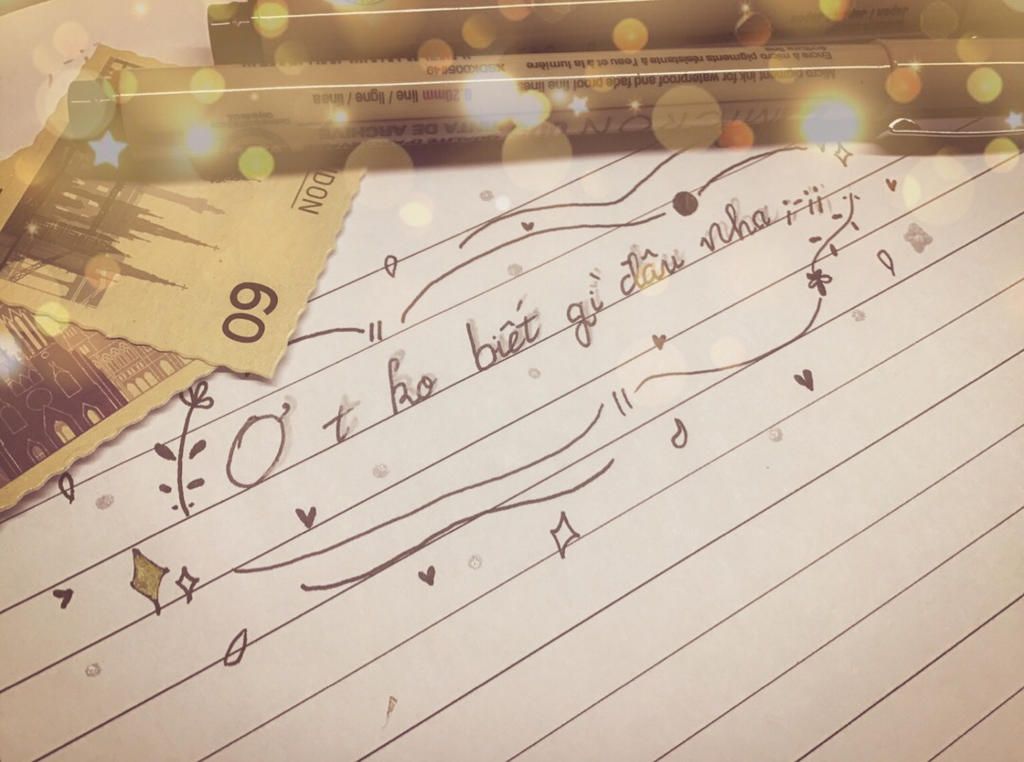 Micro pigment ink for waterproof and fade proof lines
Encre à micro pigments résistante à l'eau et à la lumière
XSDK005#49
0.20mm line / ligne / línea
DON
60
Ơ t ko biết gì đâu nha